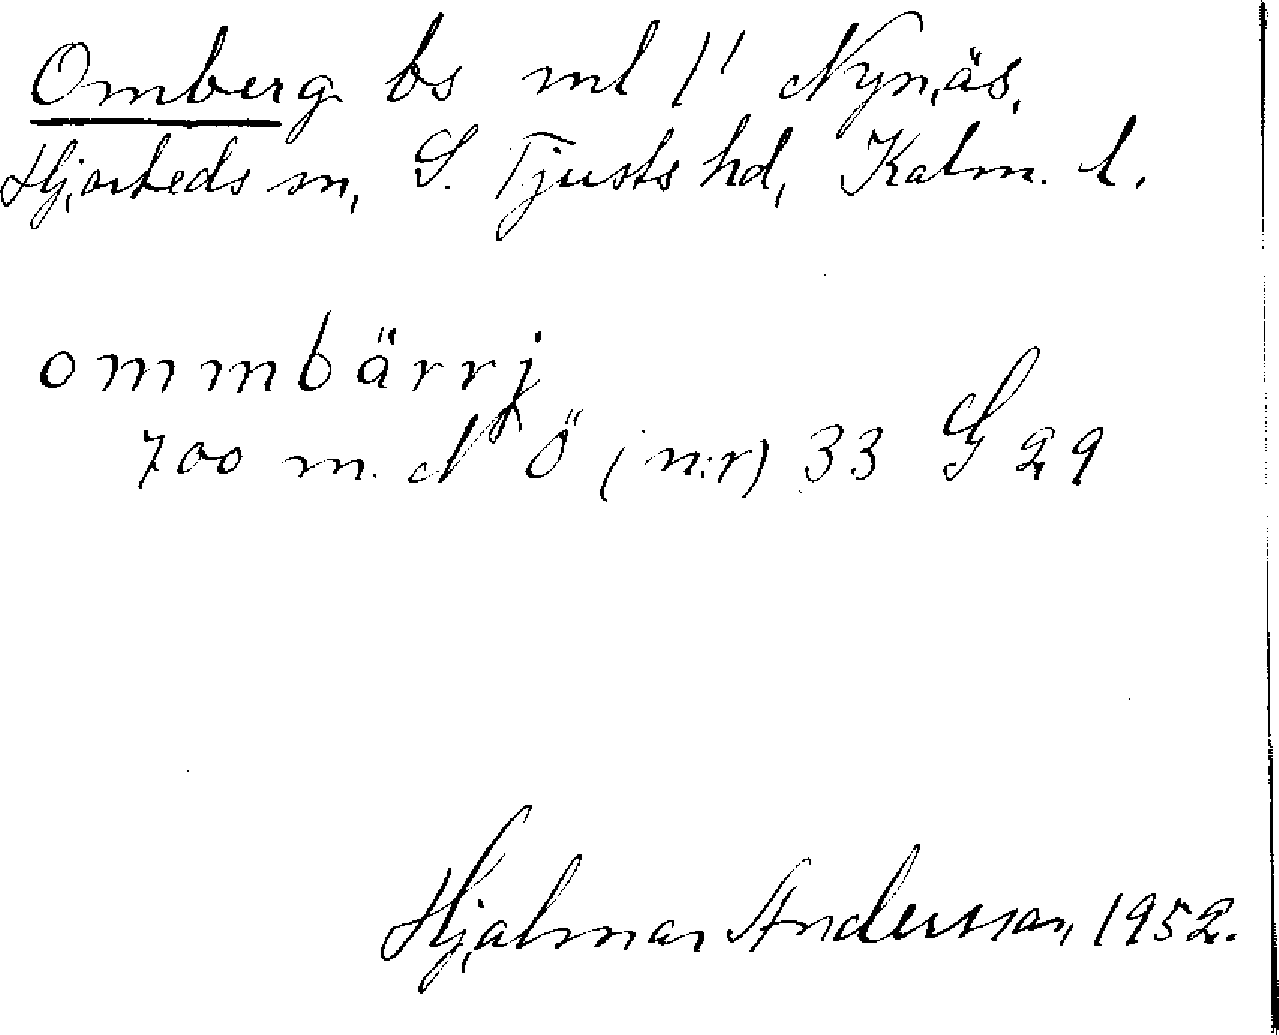 Omberg bs ml 1' Nynäs,
Hjorteds sn, S. Tjusts hd, Kalm. l.
ommbärrj
700 m. N Ö (n:r) 33 G 29
Hjalmar Andersson, 1952.